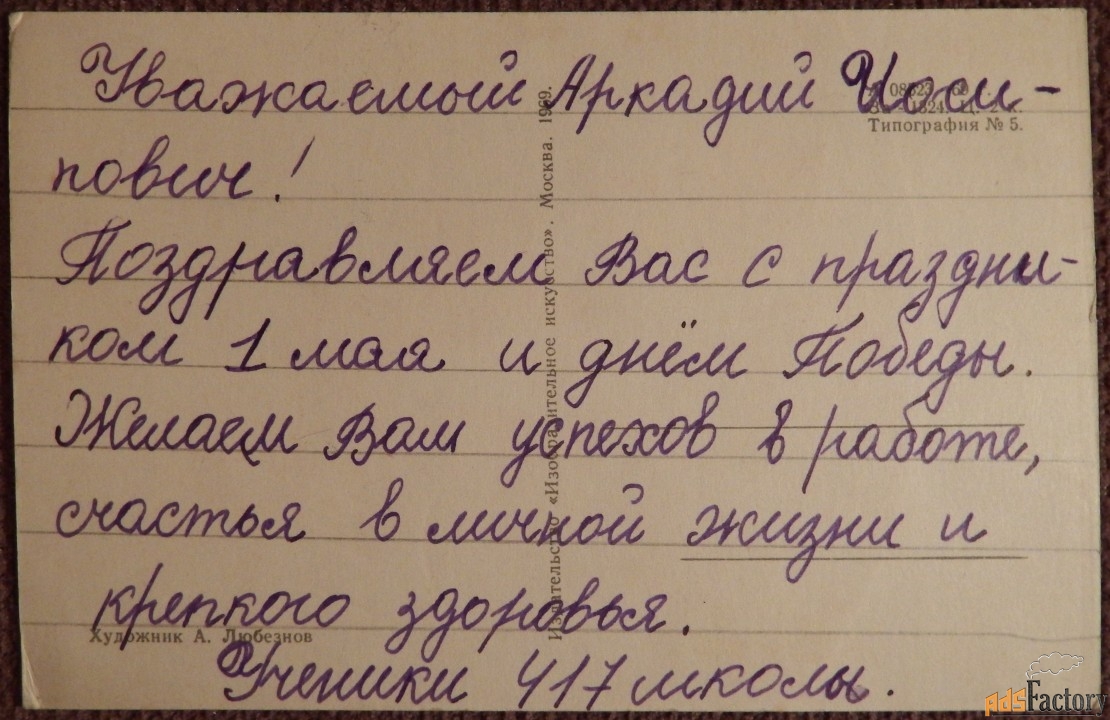 Уважаемый Аркадий Иоси-
пович!
Поздравляем Вас с праздни-
ком 1 мая и днём Победы.
Желаем Вам успехов в работе,
счастья в личной жизни и
крепкого здоровья.
Ученики 417 школы.
Типография № 5.
Издательство «Изобразительное искусство». Москва. 1969.
Художник А. Любезнов
adsFactory